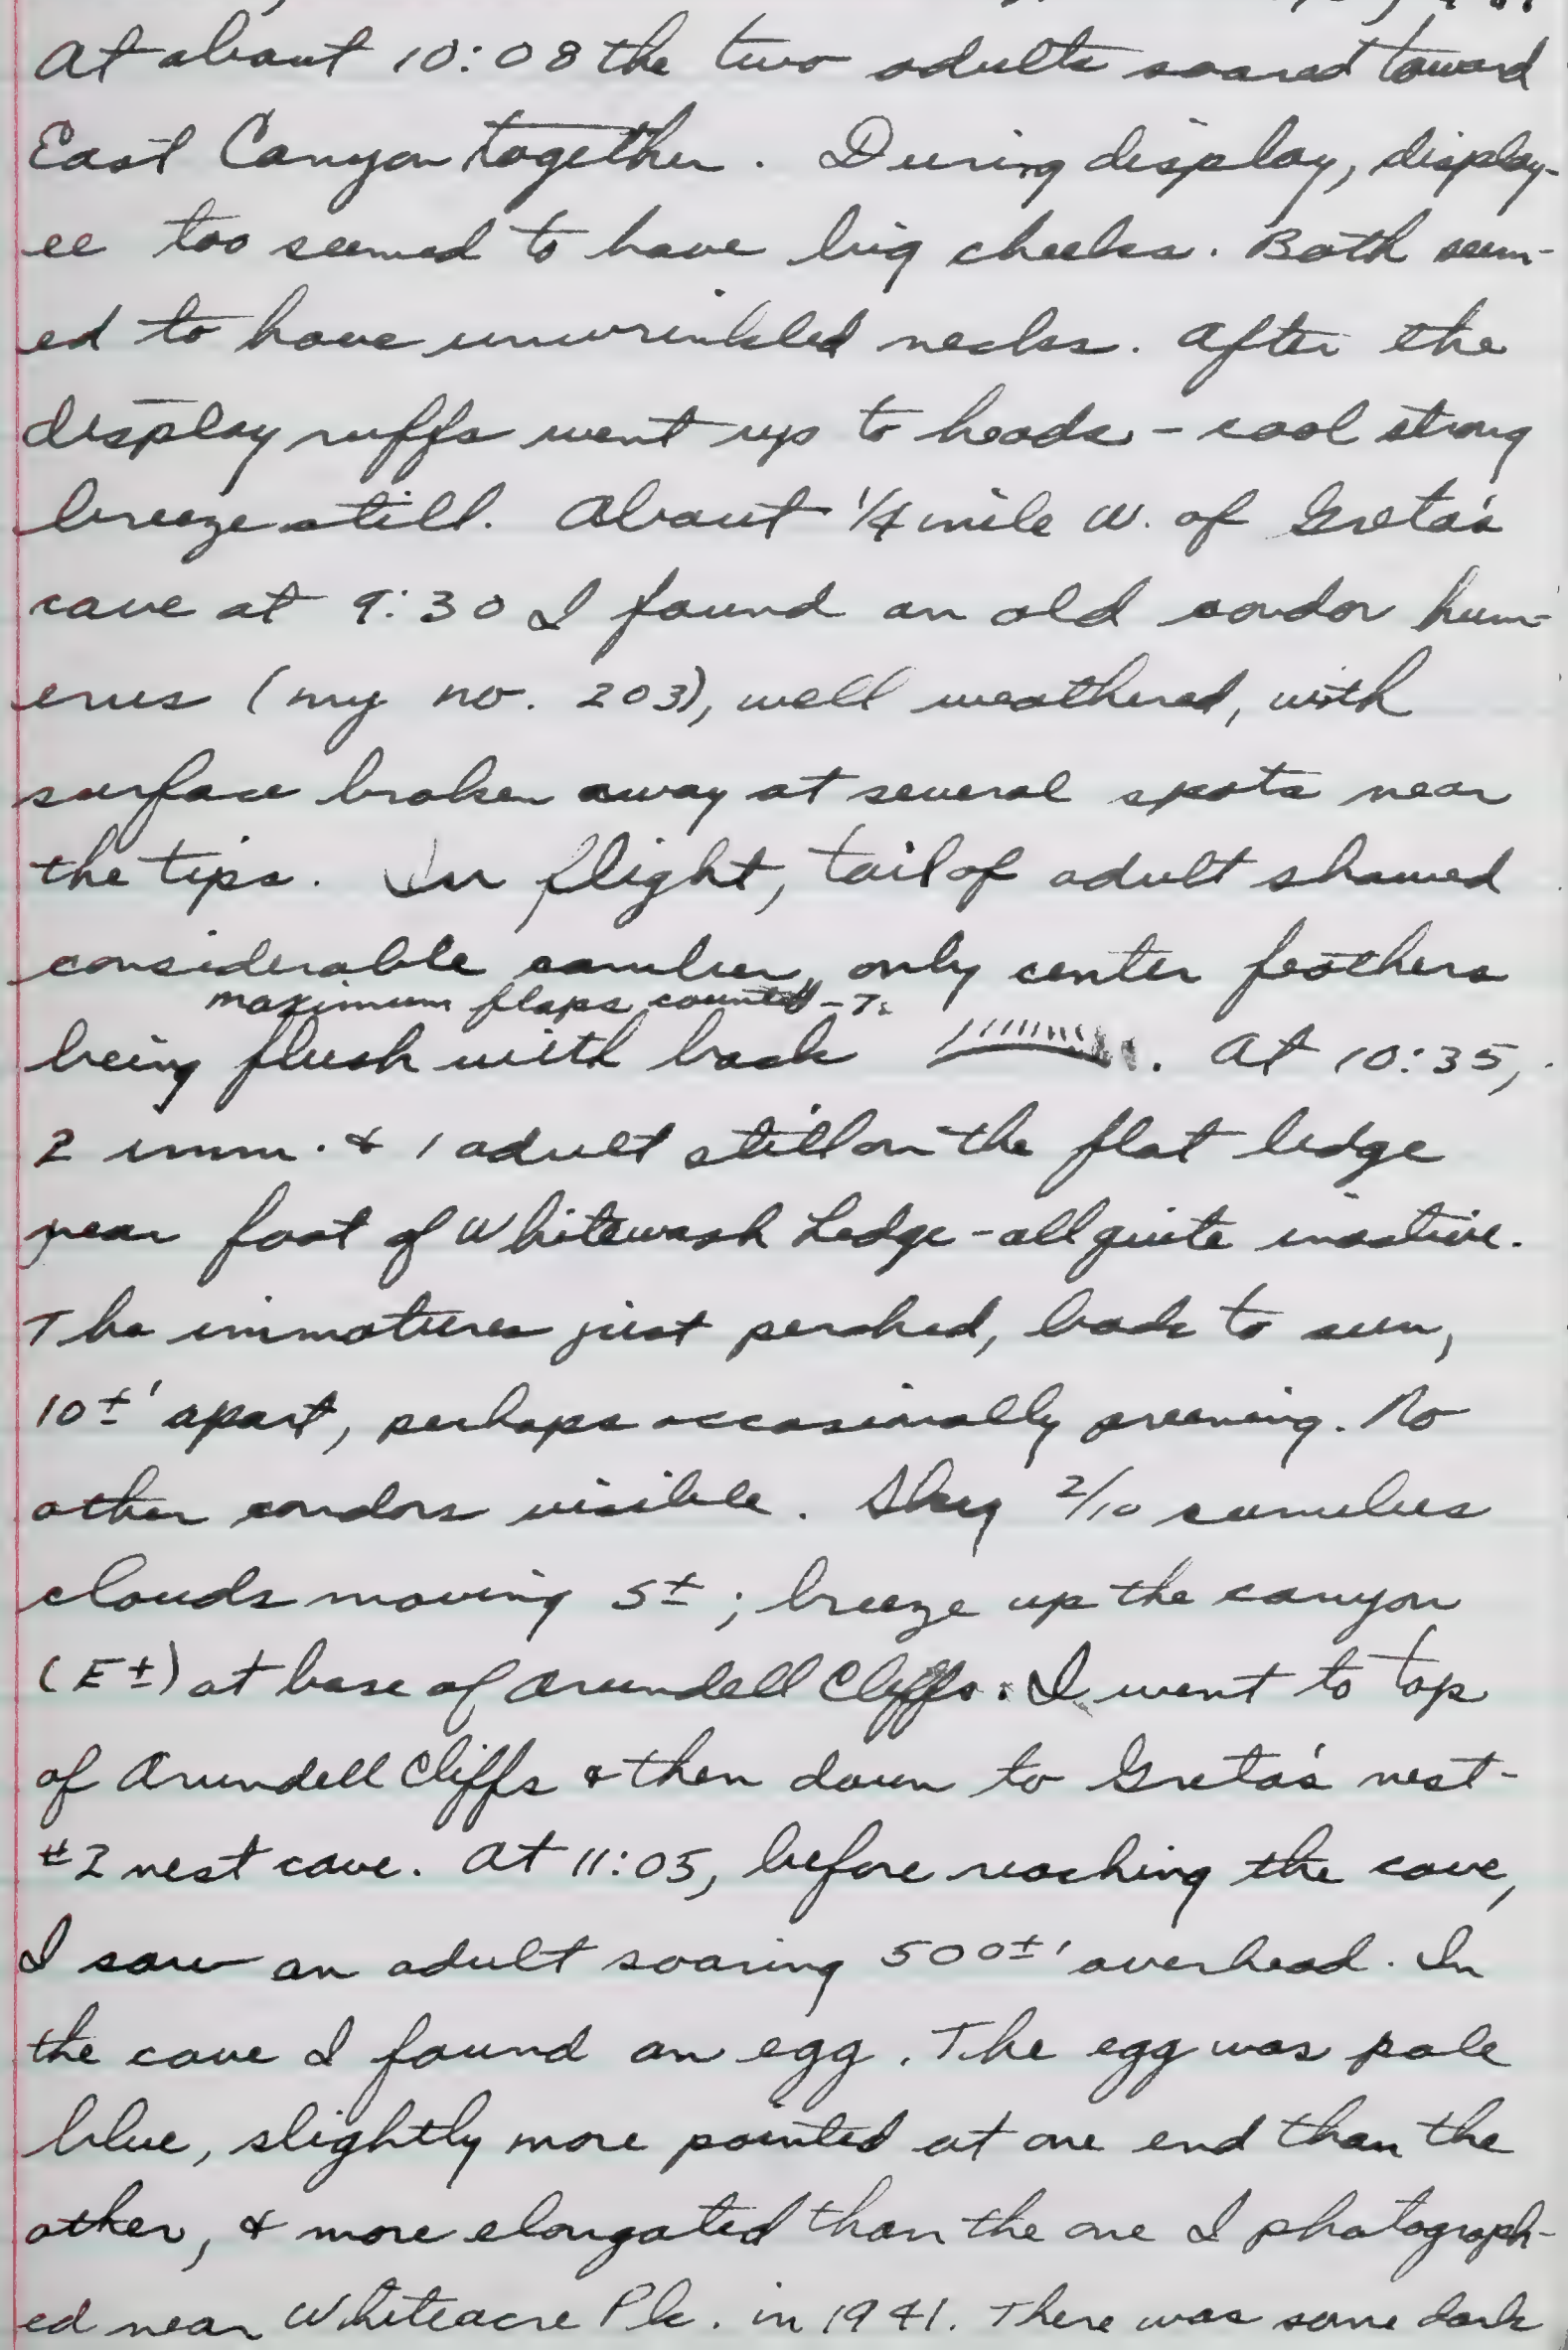 At about 10:08 the two adults soared toward
East Canyon together. During display, display-
ee too seemed to have big cheeks. Both seem-
ed to have unwrinkled necks. After the
display ruffs went up to heads - cool strong
breeze still. About 1/4 mile W. of Greta's
cave at 9:30 I found an old condor hum-
erus (my no. 203), well weathered, with
surface broken away at several spots near
the tips. In flight, tail of adult showed
considerable camber, only center feathers
maximum flaps counted - 7.
being flush with back . At 10:35,
2 imm. & 1 adult still on the flat ledge
near foot of Whitewash Ledge - all quite inactive.
The immatures just perched, back to sun,
10±' apart, perhaps occasionally preening. No
other condors visible. Sky 2/10 cumulus
clouds moving S±; breeze up the canyon
(E±) at base of Arundell Cliffs. I went to top
of Arundell Cliffs & then down to Greta's nest-
#2 nest cave. At 11:05, before reaching the cave,
I saw an adult soaring 500±' overhead. In
the cave I found an egg. The egg was pale
blue, slightly more pointed at one end than the
other, & more elongated than the one I photograph-
ed near Whiteacre Pk. in 1941. There was some dark